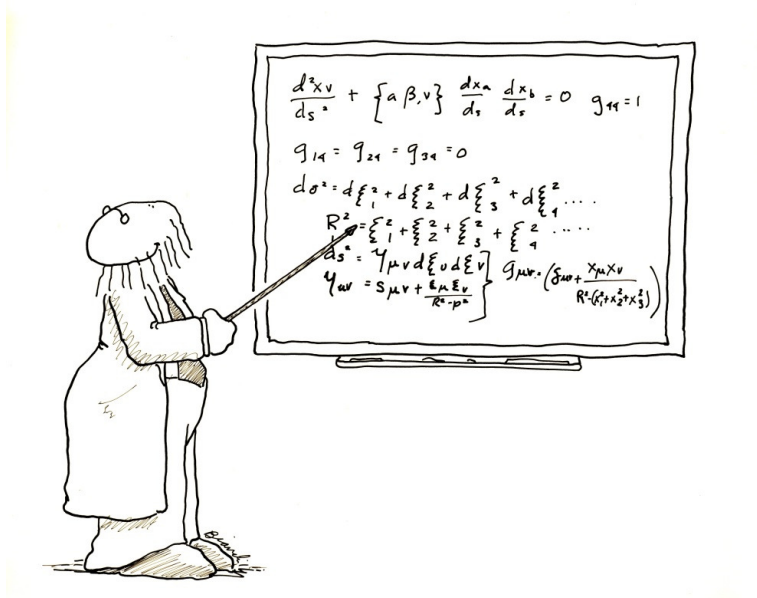 d²xν/ds² + {αβ,ν} dxa/ds dxb/ds = 0 g₄₄ = 1
g₁₄ = g₂₄ = g₃₄ = 0
dσ² = dξ₁² + dξ₂² + dξ₃² + dξ₄² ....
R² = ξ₁² + ξ₂² + ξ₃² + ξ₄² .....
ds² = γμν dξυ dξν
γμν = Sμν + ξμξν/R²-p² } gμν = (δμν + xμxν/R²-(x₁²+x₂²+x₃²))